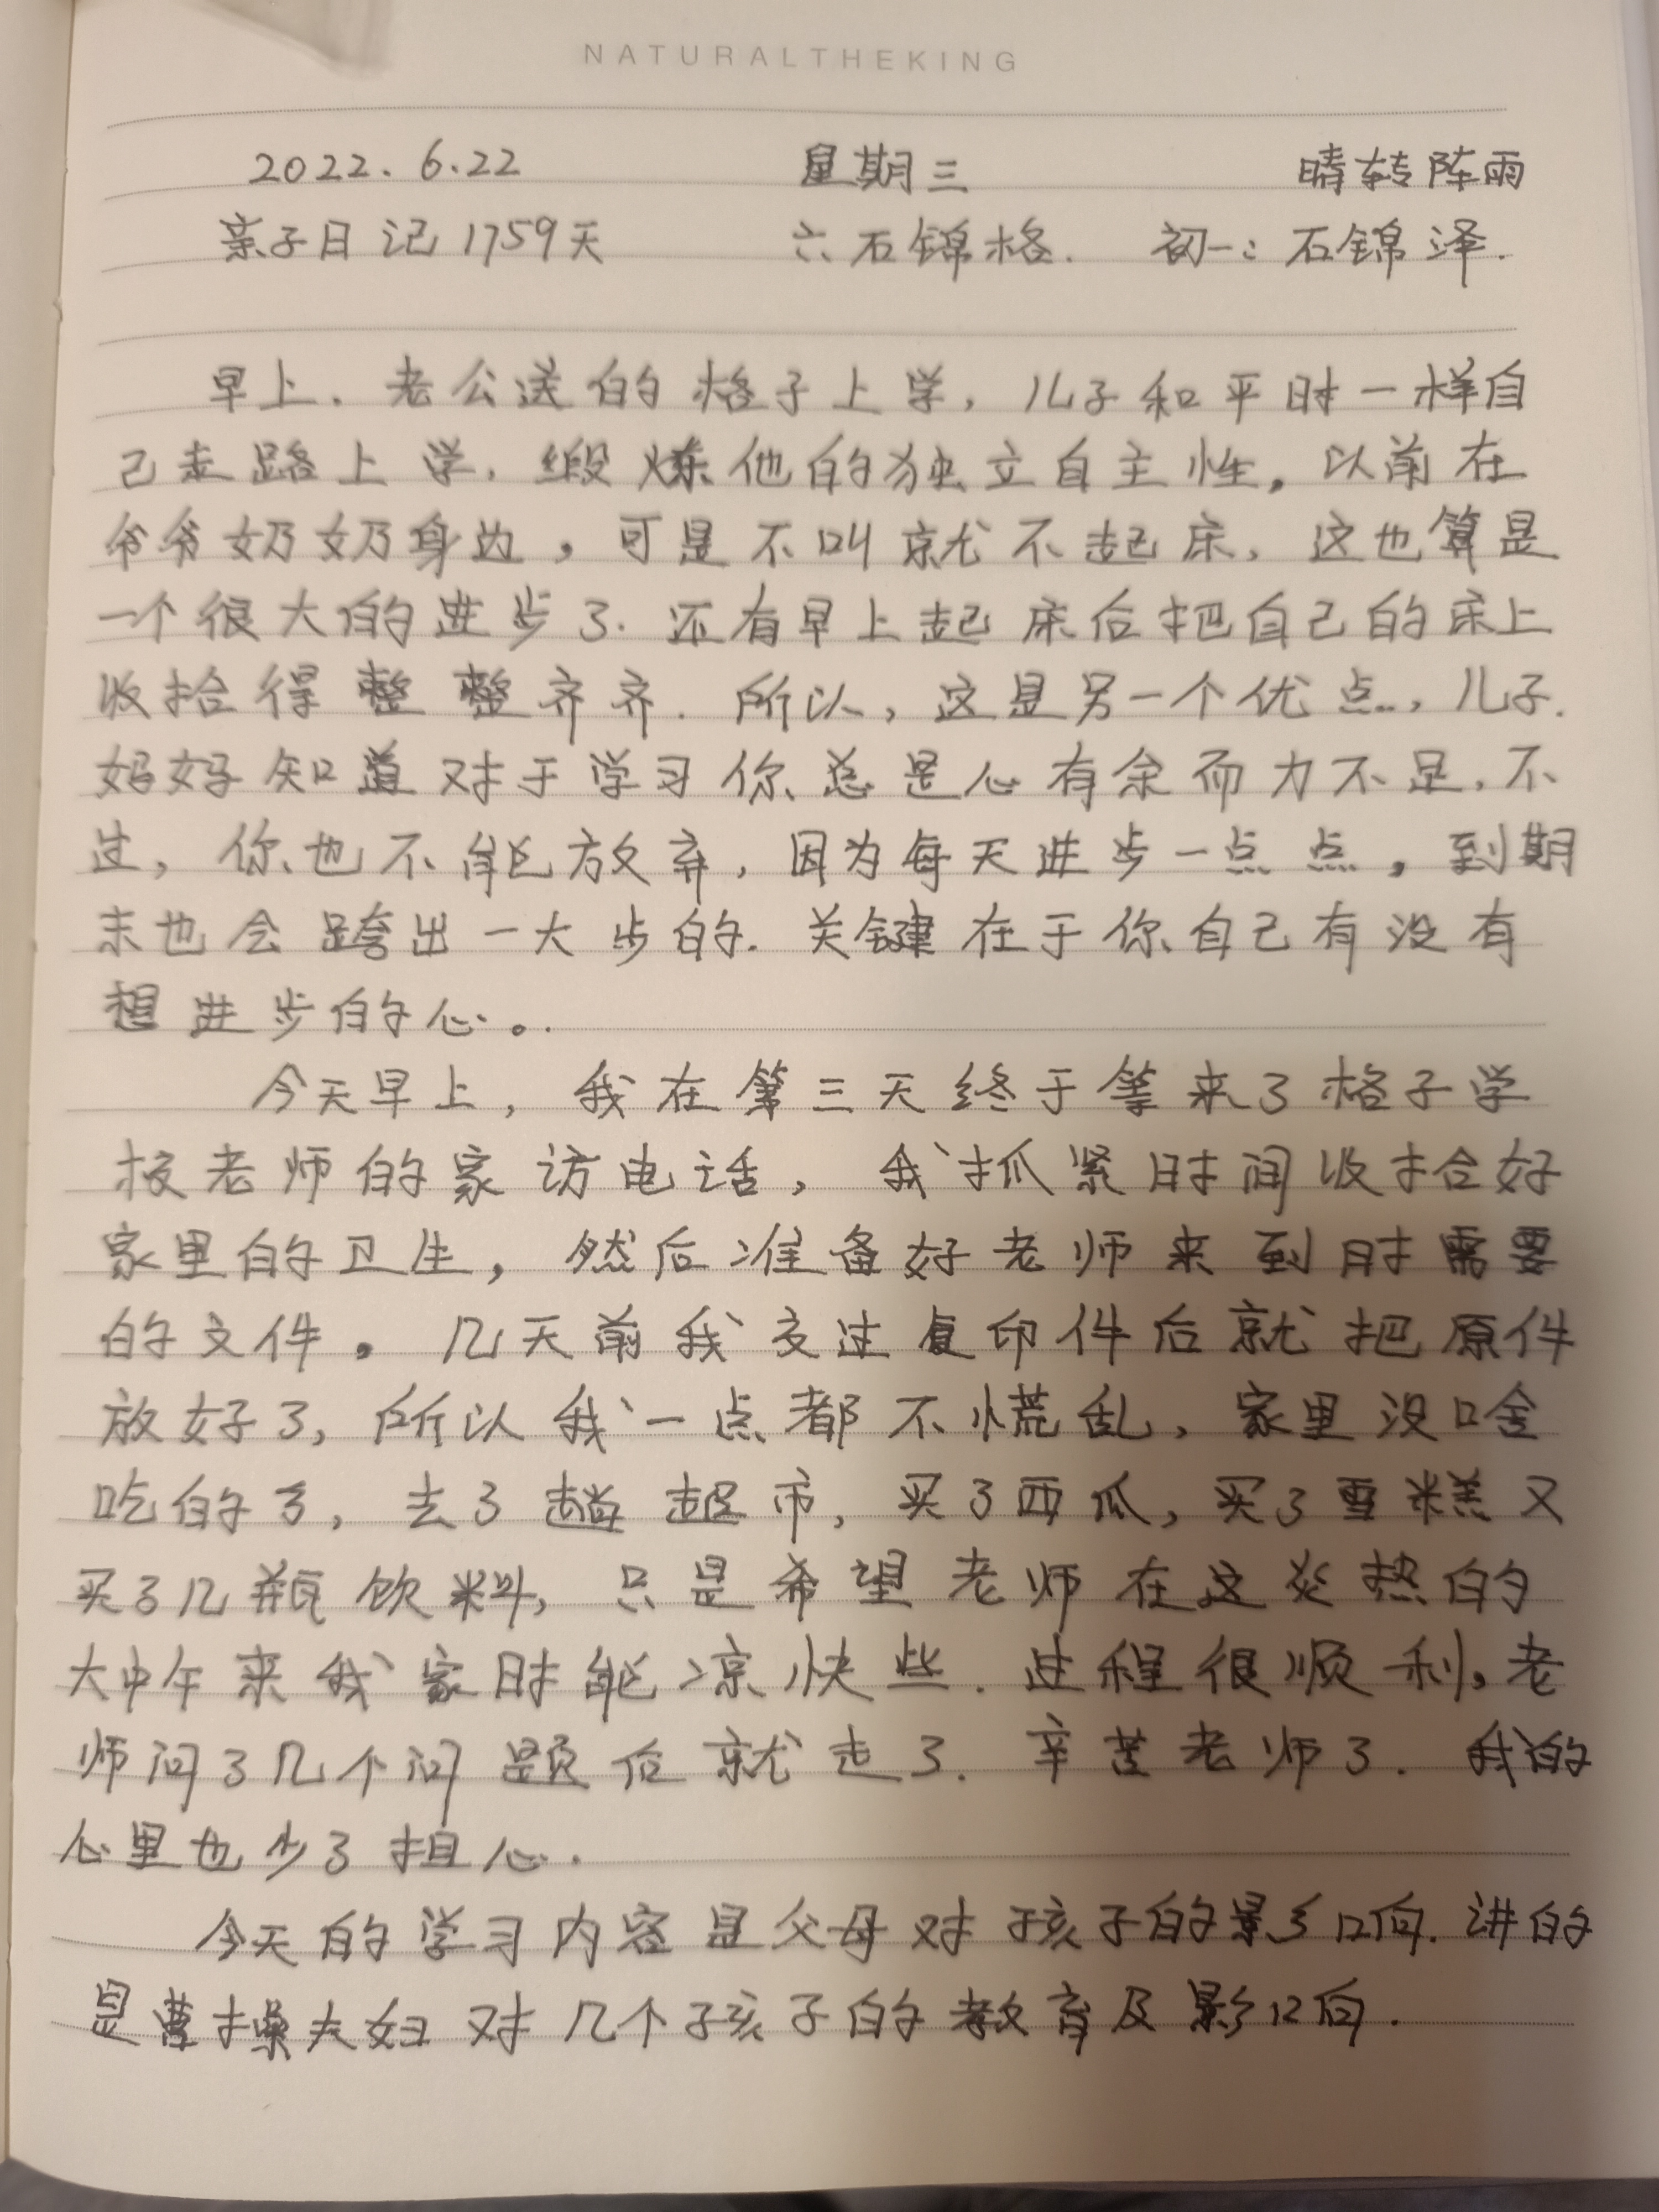 NATURALTHEKING
2022.6.22 星期三 晴转阵雨
亲子日记1759天 六:石锦格. 初一:石锦泽.
早上.老公送的格子上学,儿子和平时一样自
己走路上学.锻炼他的独立自主性。以前在
爷爷奶奶身边,可是不叫就不起床,这也算是
一个很大的进步了.还有早上起床后把自己的床上
收拾得整整齐齐.所以,这是另一个优点..,儿子.
妈妈知道对于学习你总是心有余而力不足,不
过,你也不能放弃,因为每天进步一点点,到期
末也会跨出一大步的.关键在于你自己有没有
想进步的心。.
今天早上,我在第三天终于等来了格子学
校老师的家访电话,我抓紧时间收拾好
家里的卫生,然后准备好老师来到时需要
的文件。几天前我交过复印件后就把原件
放好了,所以我一点都不慌乱,家里没啥
吃的了,去了趟超市,买了西瓜,买了雪糕又
买了几瓶饮料,只是希望老师在这炎热的
大中午来我家时能凉快些.过程很顺利,老
师问了几个问题后就走了.辛苦老师了.我的
心里也少了担心.
今天的学习内容是父母对孩子的影响.讲的
是曹操夫妇对几个孩子的教育及影响.